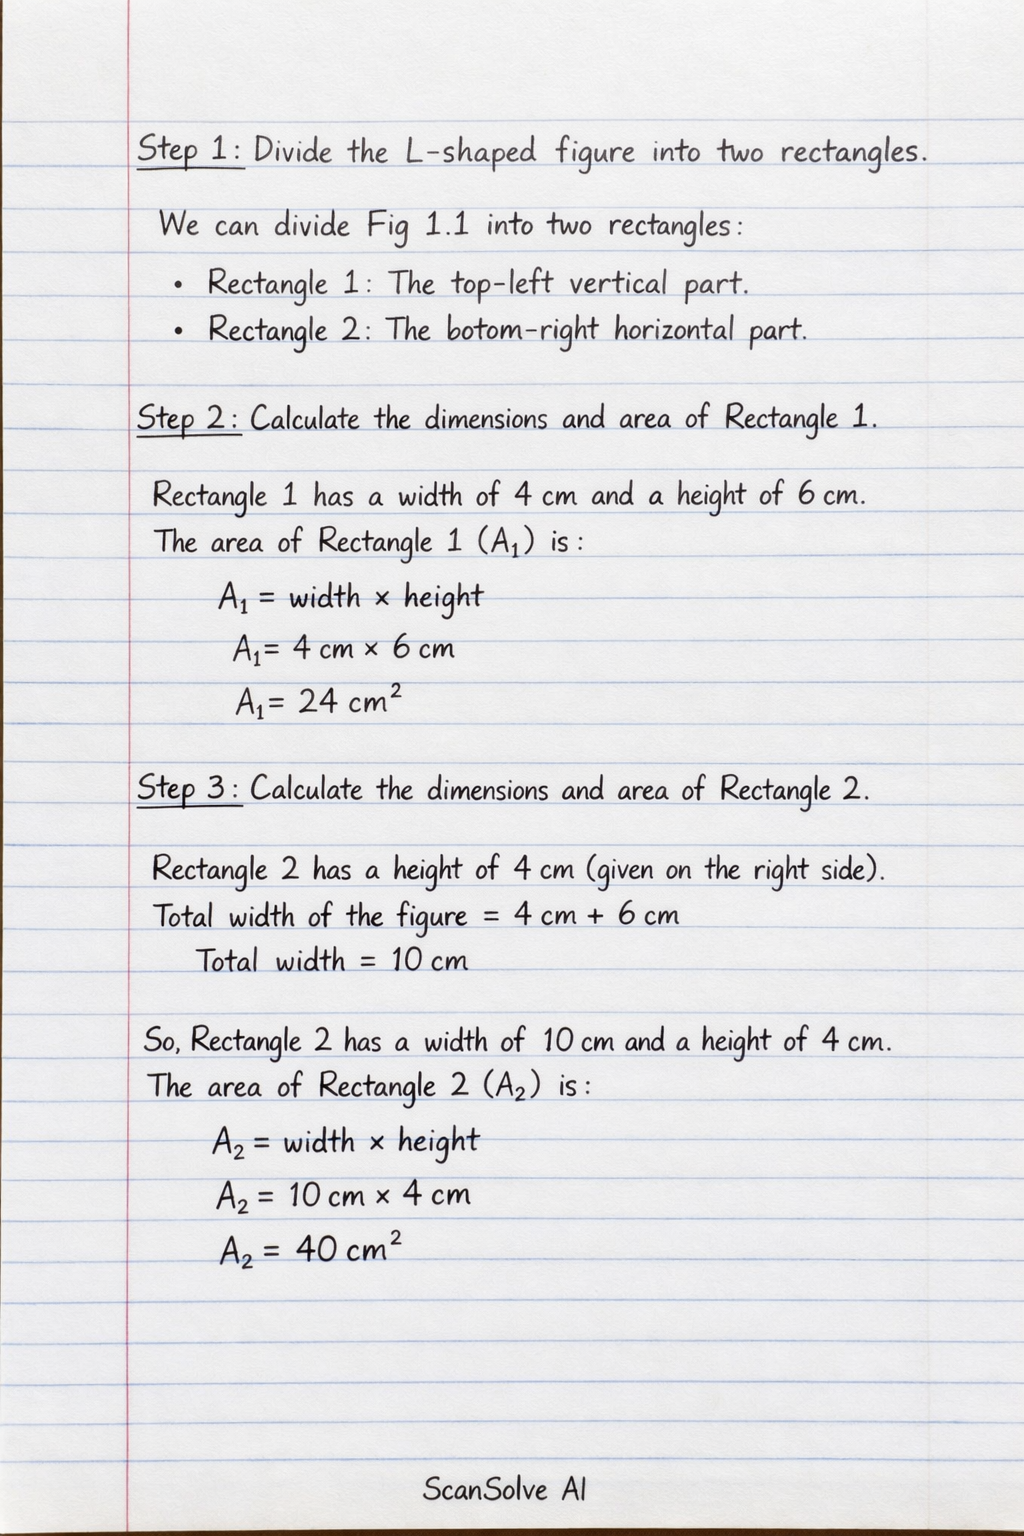 Step 1: Divide the L-shaped figure into two rectangles.
We can divide Fig 1.1 into two rectangles:
• Rectangle 1: The top-left vertical part.
• Rectangle 2: The botom-right horizontal part.
Step 2: Calculate the dimensions and area of Rectangle 1.
Rectangle 1 has a width of 4 cm and a height of 6 cm.
The area of Rectangle 1 (A₁) is:
A₁ = width × height
A₁= 4 cm × 6 cm
A₁= 24 cm²
Step 3: Calculate the dimensions and area of Rectangle 2.
Rectangle 2 has a height of 4 cm (given on the right side).
Total width of the figure = 4 cm + 6 cm
Total width = 10 cm
So, Rectangle 2 has a width of 10 cm and a height of 4 cm.
The area of Rectangle 2 (A₂) is:
A₂ = width × height
A₂ = 10 cm × 4 cm
A₂ = 40 cm²
ScanSolve AI